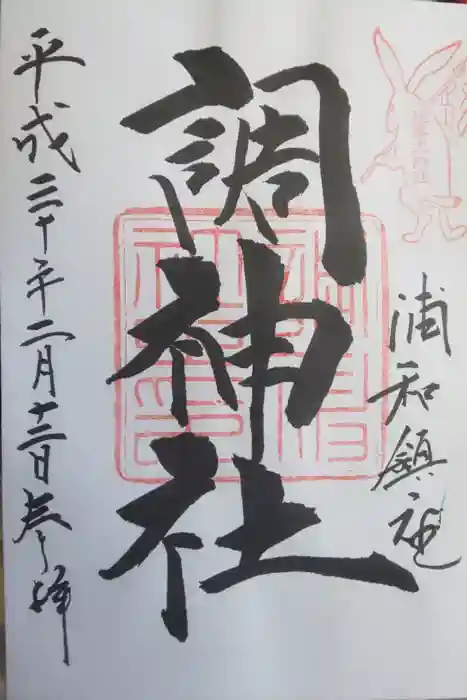 浦和鎮社
調神社
平成三十年二月十三日参拝